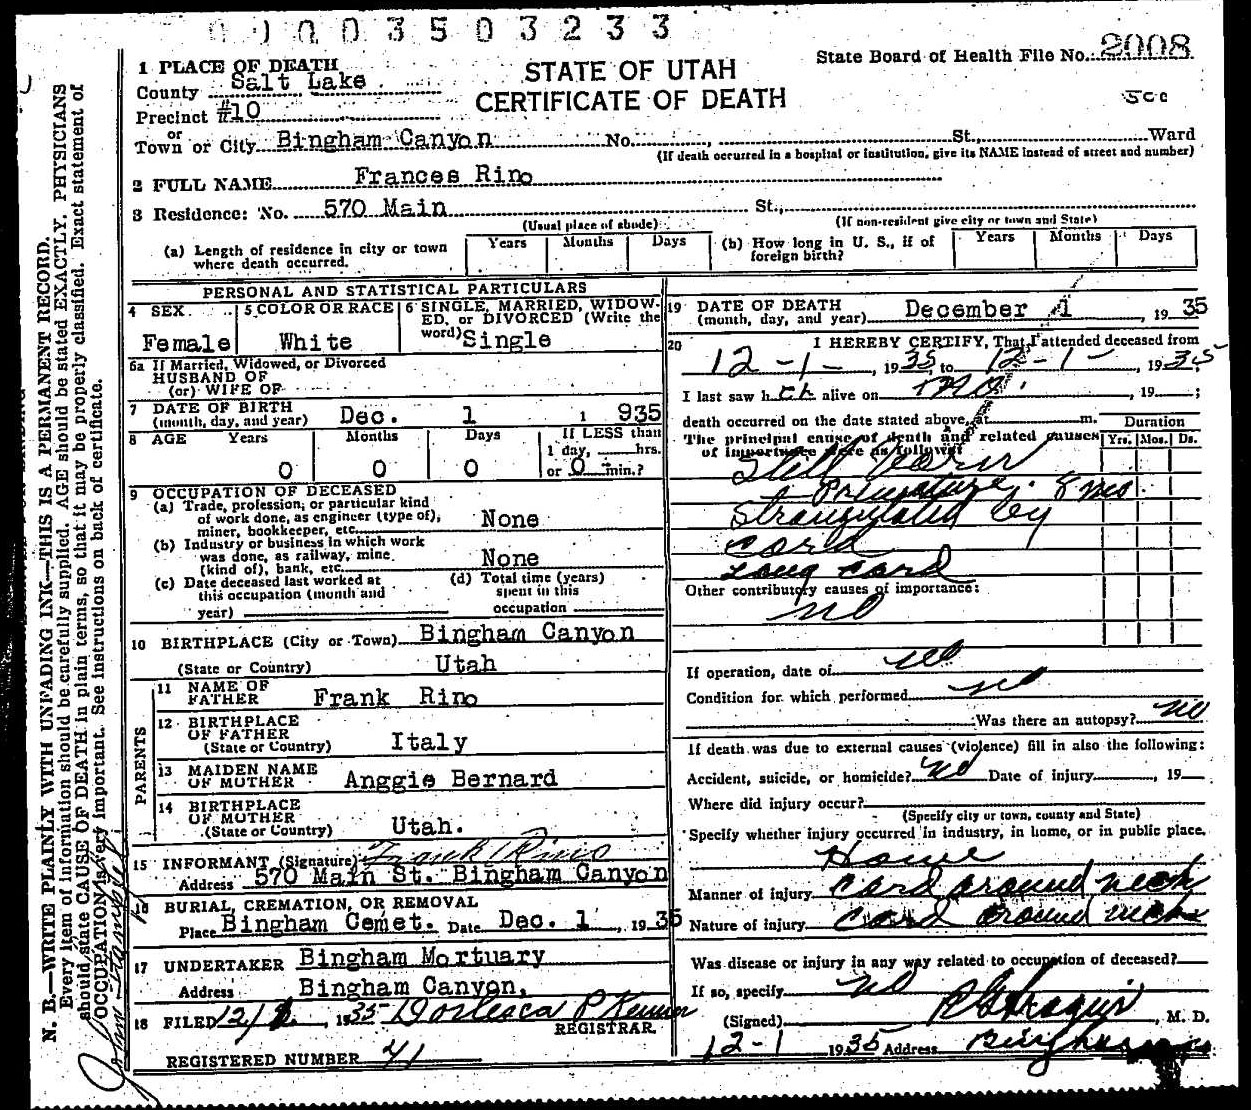 0 0 0 0 3 5 0 3 2 3 3
State Board of Health File No. 2008
1 PLACE OF DEATH
County Salt Lake
STATE OF UTAH
CERTIFICATE OF DEATH
Precinct #10
or
Town or City Bingham Canyon No. , St., Ward
(If death occurred in a hospital or institution, give its NAME instead of street and number)
2 FULL NAME Frances Rino
3 Residence: No. 570 Main St.,
(Usual place of abode) (If non-resident give city or town and State)
(a) Length of residence in city or town where death occurred. Years Months Days
(b) How long in U. S., if of foreign birth? Years Months Days
PERSONAL AND STATISTICAL PARTICULARS
4 SEX Female
5 COLOR OR RACE White
6 SINGLE, MARRIED, WIDOWED, or DIVORCED (Write the word) Single
6a If Married, Widowed, or Divorced
HUSBAND OF
(or) WIFE OF
7 DATE OF BIRTH
(month, day, and year) Dec. 1 1 935
8 AGE Years Months Days If LESS than
1 day, hrs.
0 0 0 or 0 min.?
9 OCCUPATION OF DECEASED
(a) Trade, profession, or particular kind
of work done, as engineer (type of),
miner, bookkeeper, etc. None
(b) Industry or business in which work
was done, as railway, mine
(kind of), bank, etc. None
(c) Date deceased last worked at
this occupation (month and
year)
(d) Total time (years)
spent in this
occupation
10 BIRTHPLACE (City or Town) Bingham Canyon
(State or Country) Utah
PARENTS
11 NAME OF
FATHER Frank Rino
12 BIRTHPLACE
OF FATHER
(State or Country) Italy
13 MAIDEN NAME
OF MOTHER Anggie Bernard
14 BIRTHPLACE
OF MOTHER
(State or Country) Utah.
15 INFORMANT (Signature) Frank Rino
Address 570 Main St. Bingham Canyon
16 BURIAL, CREMATION, OR REMOVAL
Place Bingham Cemet. Date Dec. 1 , 19 35
17 UNDERTAKER Bingham Mortuary
Address Bingham Canyon,
18 FILED 12/ , 1935
REGISTRAR.
REGISTERED NUMBER 41
19 DATE OF DEATH
(month, day, and year) December 1 , 19 35
20 I HEREBY CERTIFY, That I attended deceased from
12 - 1 - , 19 35, to 12 - 1 - , 19 35;
I last saw h er alive on , 19 ;
death occurred on the date stated above, at m.
The principal cause of death and related causes
of importance were as follows:
Duration
Yrs. Mos. Ds.
Still born
Premature. 8 mo.
Strangulated by
cord
Long cord
Other contributory causes of importance:
no
If operation, date of no
Condition for which performed no
Was there an autopsy? no
If death was due to external causes (violence) fill in also the following:
Accident, suicide, or homicide? no Date of injury , 19
Where did injury occur?
(Specify city or town, county and State)
Specify whether injury occurred in industry, in home, or in public place.
Home
Manner of injury cord around neck
Nature of injury cord around neck
Was disease or injury in any way related to occupation of deceased?
If so, specify no
(Signed) , M. D.
12-1 19 35 Address Bingham
N. B.—WRITE PLAINLY WITH UNFADING INK—THIS IS A PERMANENT RECORD.
Every item of information should be carefully supplied. AGE should be stated EXACTLY. PHYSICIANS
should state CAUSE OF DEATH in plain terms, so that it may be properly classified. Exact statement of
OCCUPATION is very important. See instructions on back of certificate.